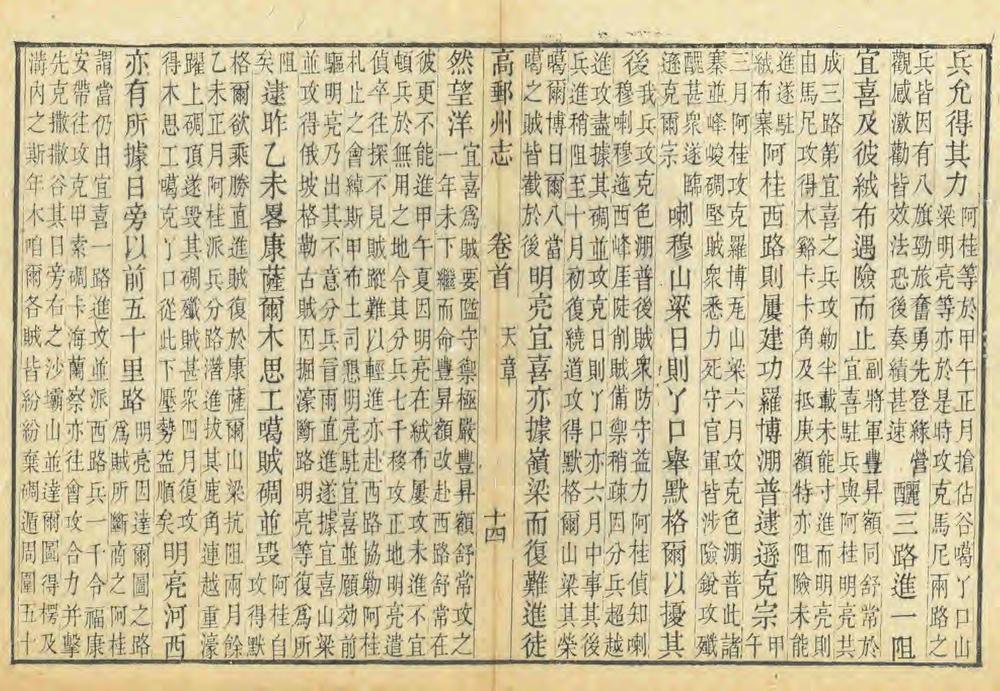 兵允得其力
阿桂等於甲午正月搶佔谷噶丫口山
梁明亮等亦於是時攻克馬尼兩路之
兵皆因有八旗勁旅奮勇先登綠營
觀感激勸皆效法恐後奏績甚速
釃三路進一阻
宜喜及彼絨布遇險而止
副將軍豐昇額同舒常於
宜喜駐兵與阿桂明亮共
成三路第宜喜之兵攻勦半載未能寸進而明亮則
由馬尼攻得木谿卡卡角及抵庚額特亦阻險未能
進遂駐
絨布寨
阿桂西路則屢建功羅博淜普逮遜克宗
甲
午
三月阿桂攻克羅博瓦山梁六月攻克色淜普此諸
寨並峰峻碉堅賊眾悉力死守官軍皆涉險銳攻殲
醜甚眾遂臨
遜克爾宗
喇穆山梁日則丫口舉默格爾以擾其
後
我兵攻克色淜普後賊眾防守益力阿桂偵知喇
穆喇穆迤西峰厓陡削賊備禦稍疎因分兵超越
進攻盡據其碉並攻克日則丫口亦六月中事其後
兵進稍阻至十月初復繞道攻得默格爾山梁其榮
噶爾博日爾八當
噶之賊皆截於後
明亮宜喜亦據嶺梁而復難進徒
高郵州志 卷首 天章 十四
然望洋
宜喜為賊要隘守禦極嚴豐昇額舒常攻之
一年未下繼而命豐昇額改赴西路舒常在
彼更不能進甲午夏因明亮在絨布屢攻未進不宜
頓兵於無用之地令其分兵七千移攻正地明亮遣
偵卒往探不見賊蹤難以輕進亦赴西路協勦阿桂
札止之會綽斯甲布土司懇明亮駐宜喜並願効前
驅明亮乃出其不意分兵冒雨直進遂據宜喜山梁
並攻得俄坡格勒古賊因掘濠斷路明亮等復為所
阻
矣
逮昨乙未畧康薩爾木思工噶賊碉並毀
阿桂自
攻得默
格爾欲乘勝直進賊復於康薩爾山梁抗阻兩月餘
乙未正月阿桂派兵分路潛進拔其鹿角連越重濠
躍上碉頂遂毀其碉殲賊甚眾四月復攻
得木思工噶克丫口從此下壓益順矣
明亮河西
亦有所據日旁以前五十里路
明亮因達爾圖之路
為賊所斷商之阿桂
謂當仍由宜喜一路進攻並派西路兵一千令福康
安帶往攻克甲索碉卡海蘭察亦往會攻合力并擊
先克撒撒谷其日旁右之沙壩山並達爾圖得楞及
溝內之斯年木咱爾各賊皆紛紛棄碉遁周圍五十